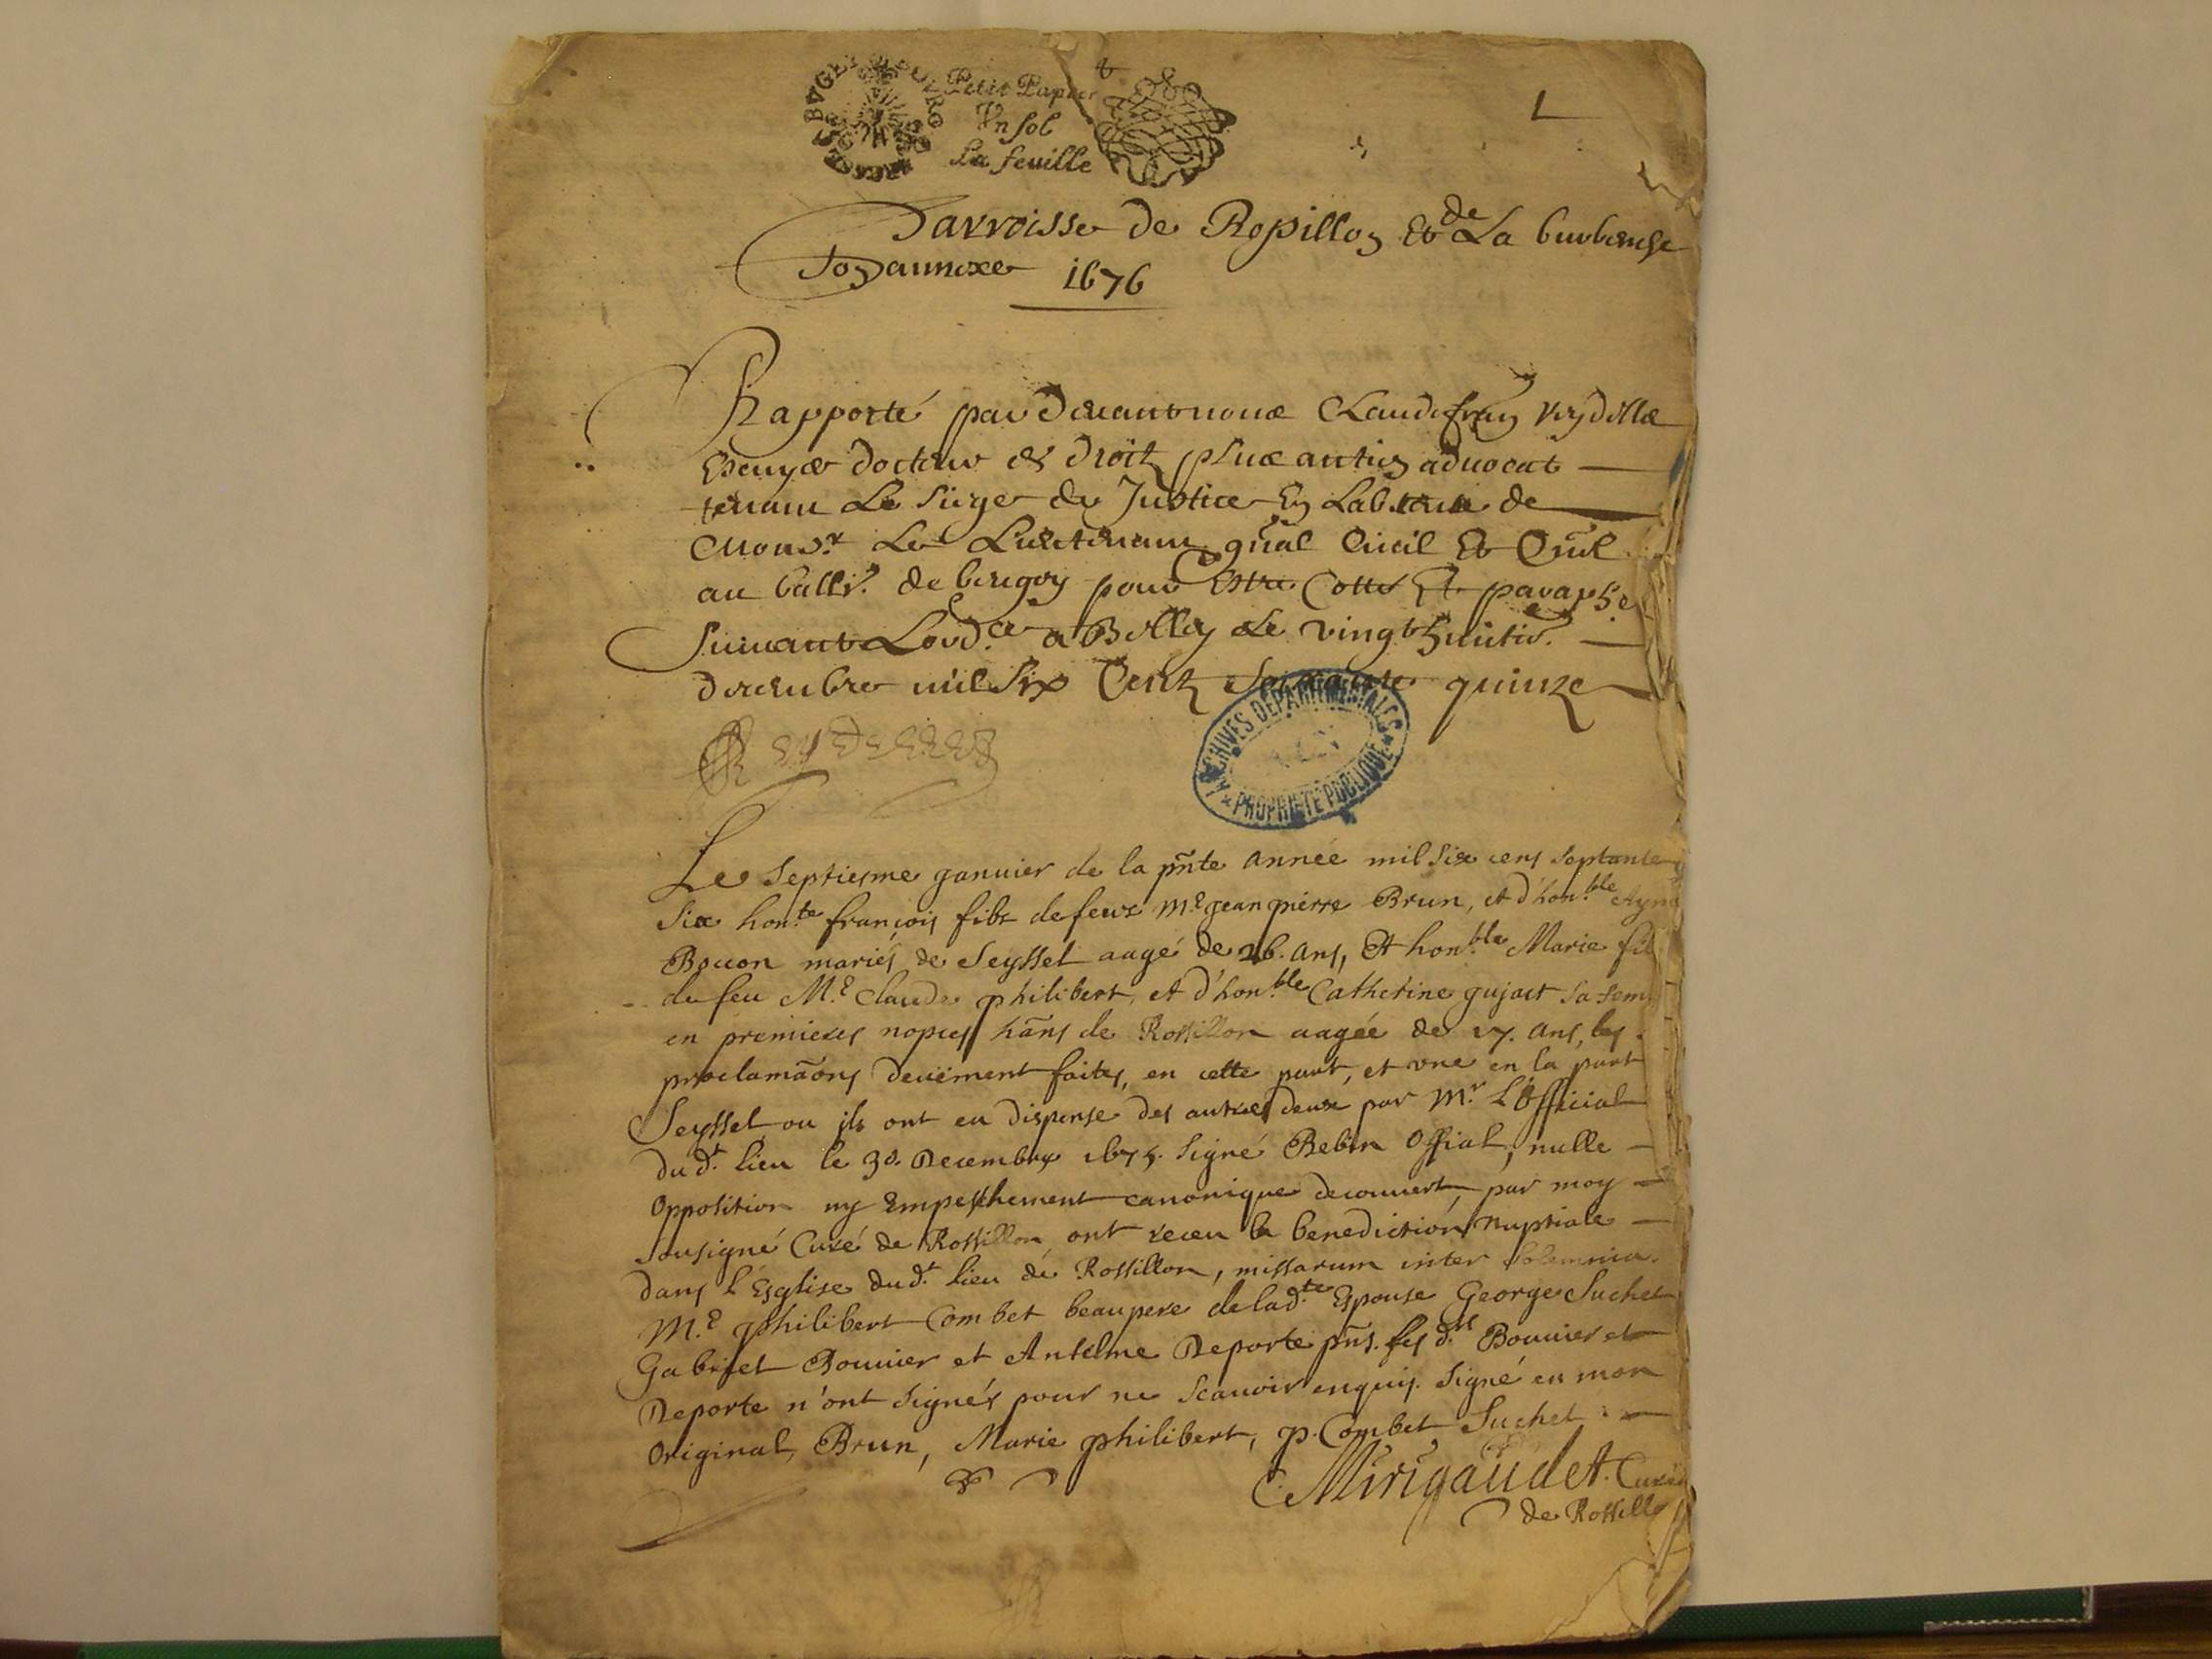 BVGEY
Petit Papier
Vn sol
La feuille
1
Parroisse de Rossillon Et de La burbanche
son annexe 1676
Rapporté par devant nous Claude fran Reydellet
Escuyer docteur es droitz plus antien aduocat
tenant Le siege de Justice En Labsence de
Monsr Le Lieutenant gñal Ciuil Et Crimil
au balli. de beugey pour Estre Cotté Et paraphé
suiuant Lordce a Belley Le vingt huictie.
decembre mil six Centz Soixante quinze
Reydellet
ARCHIVES DÉPARTEMENTALES
PROPRIÉTÉ PUBLIQUE
Le Septiesme Januier de la pñte année mil six cens septante
six honte. françois filz de feuz Me Jean pierre Brun, et d'honble
Bouon mariés de Seyssel aagé de 26. ans, Et honble Marie fil
du feu Me. Claude philibert, et d'honble Catherine gujact sa fem
en premieres nopces hãns de Rossillon aagée de 17. ans, les
proclamãons deuëment faites, en cette part, et vne en la part
Seyssel ou ils ont eu dispense des autres deux par Mr. L'Official
dudt. lieu le 30. Decembre 1675. signé Bebin Offial, nulle
opposition ny Empeschement canonique decouuert, par moy
sousigné Curé de Rossillon ont receu la benediction nuptiale
dans L'Esglise dudt. lieu de Rossillon, missarum inter solemnia.
Me. philibert Combet beaupere de ladte Espouse George Suchet
Gabriel Bouuier et Antelme Deporte pñs. les drs Bouuier et
Deporte n'ont signés pour ne scauoir enquis. signé en mon
Original, Brun, Marie philibert, p. Combet Suchet
Mirigaudet. Curé
de Rossillo